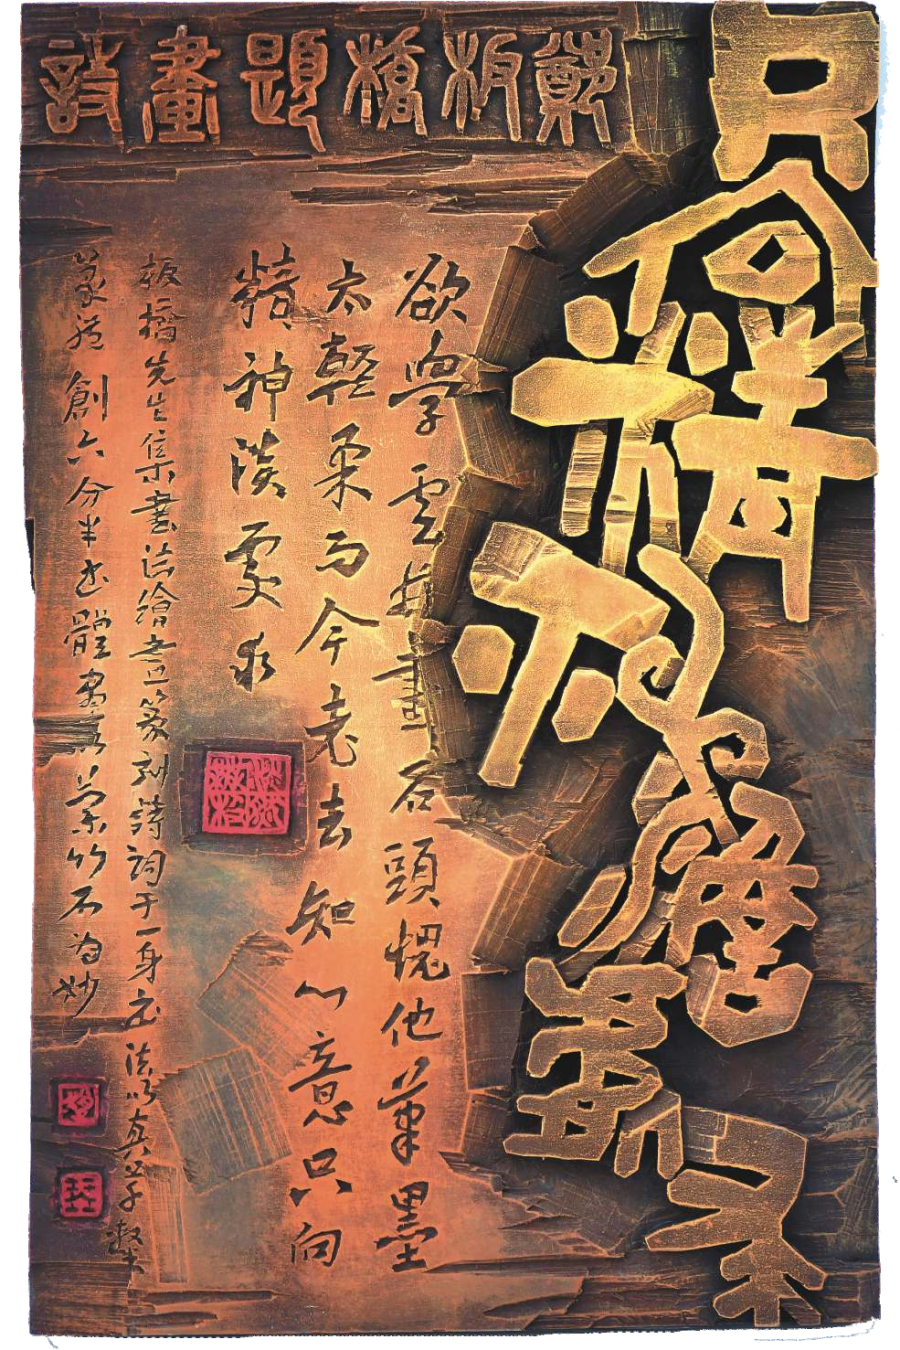 鄭板橋題畫詩
只向精神淡處求
欲學雲林畫石頭愧他筆墨
太輕柔而今老去知心意只向
精神淡處求
板橋先生集書法繪畫篆刻詩詞于一身書法以真草隸
篆創六分半書體畫以蘭竹石為妙